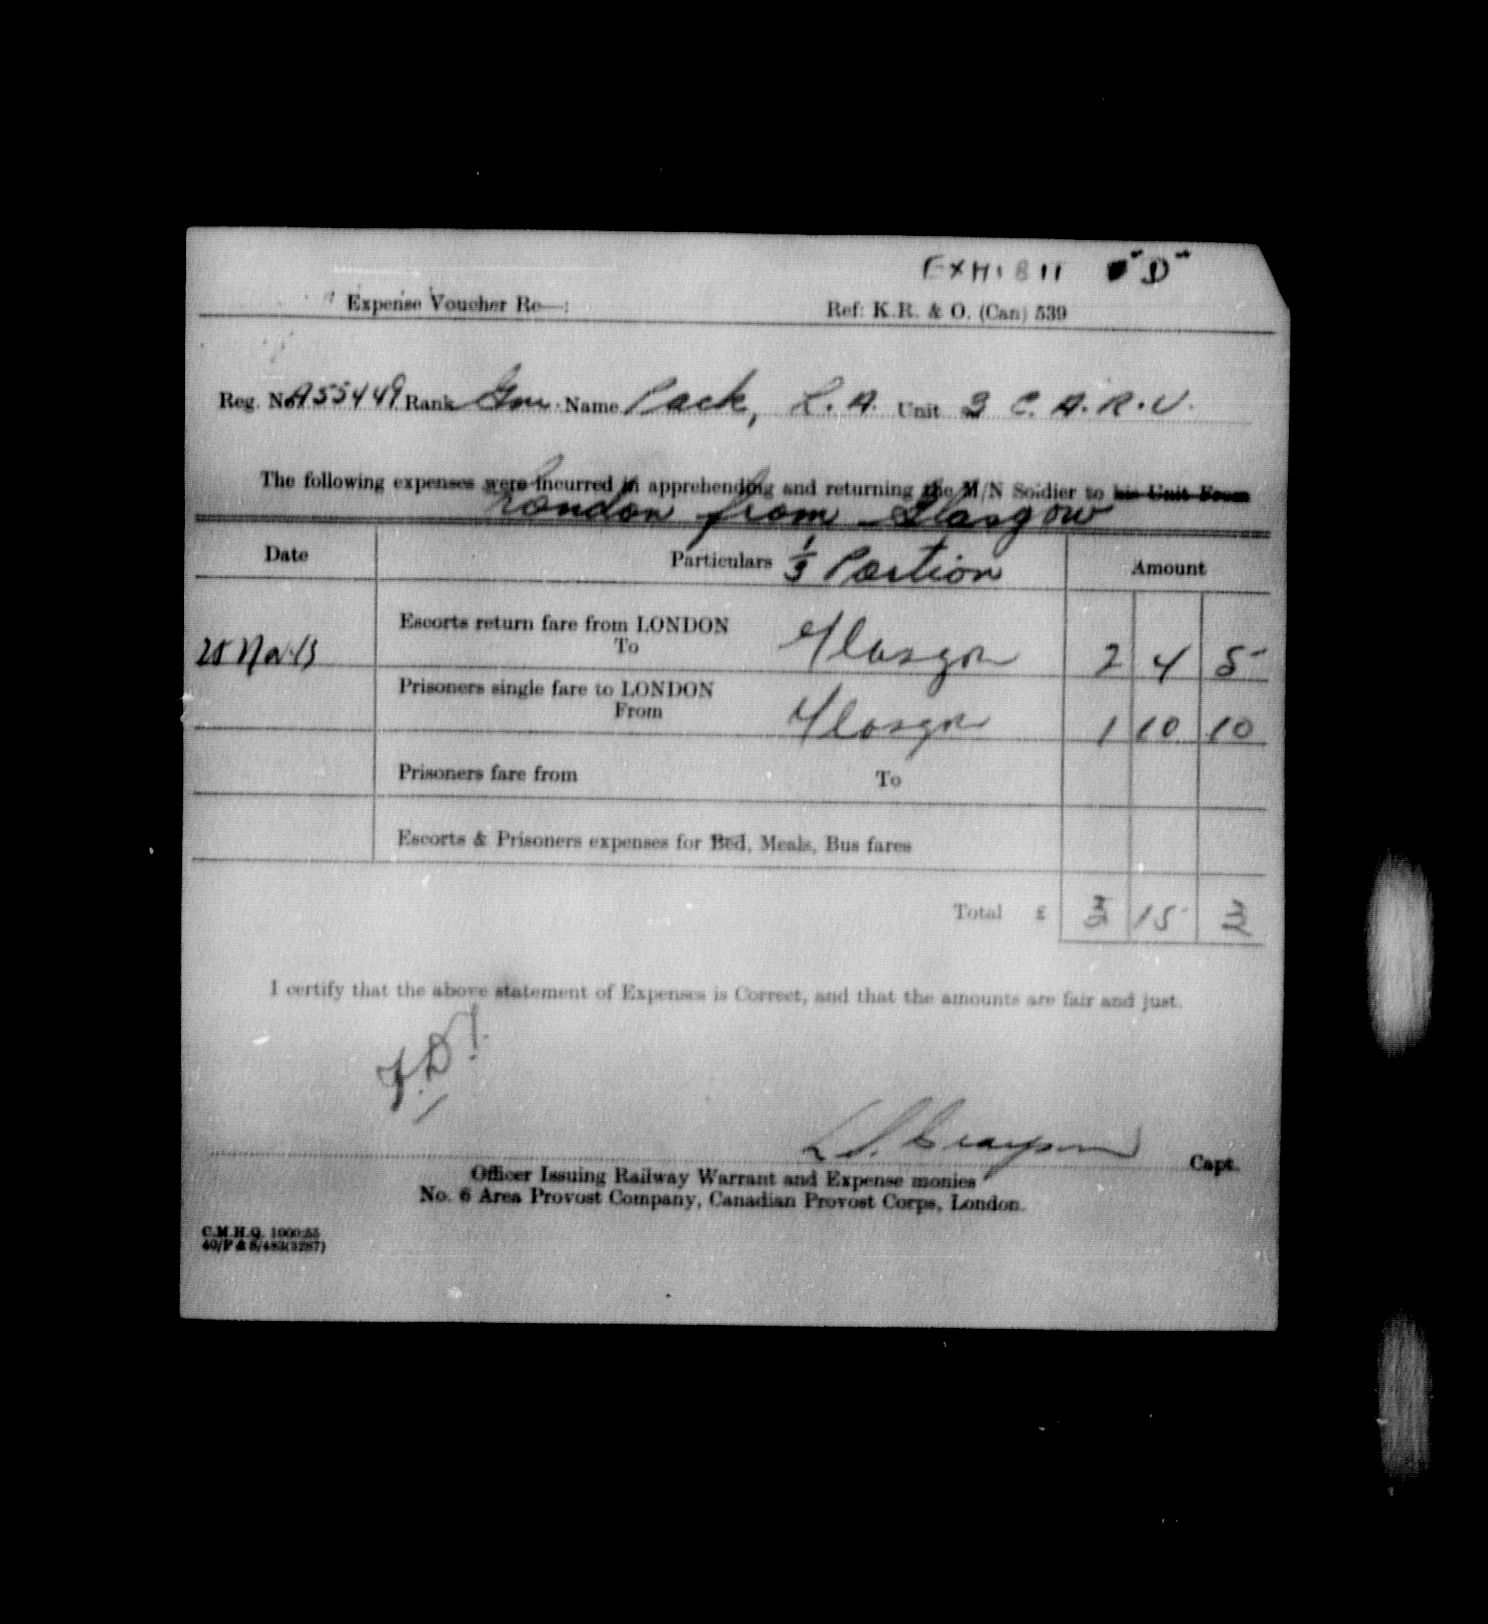 EXHIBIT "D"
Expense Voucher Re—: Ref: K.R. & O. (Can) 539
Reg. No A55449 Rank Gnr Name Pack, L.A. Unit 3 C.A.R.U.
The following expenses were incurred in apprehending and returning the M/N Soldier to his Unit From
London from Glasgow
Date Particulars 1/3 Portion Amount
Escorts return fare from LONDON
To Glasgow 2 4 5
Prisoners single fare to LONDON
From Glasgow 1 10 10
Prisoners fare from To
Escorts & Prisoners expenses for Bed, Meals, Bus fares
Total £ 3 15 3
I certify that the above statement of Expenses is Correct, and that the amounts are fair and just.
Capt.
Officer Issuing Railway Warrant and Expense monies
No. 6 Area Provost Company, Canadian Provost Corps, London.
C.M.H.Q. 1000:55
40/P & S/483(3287)